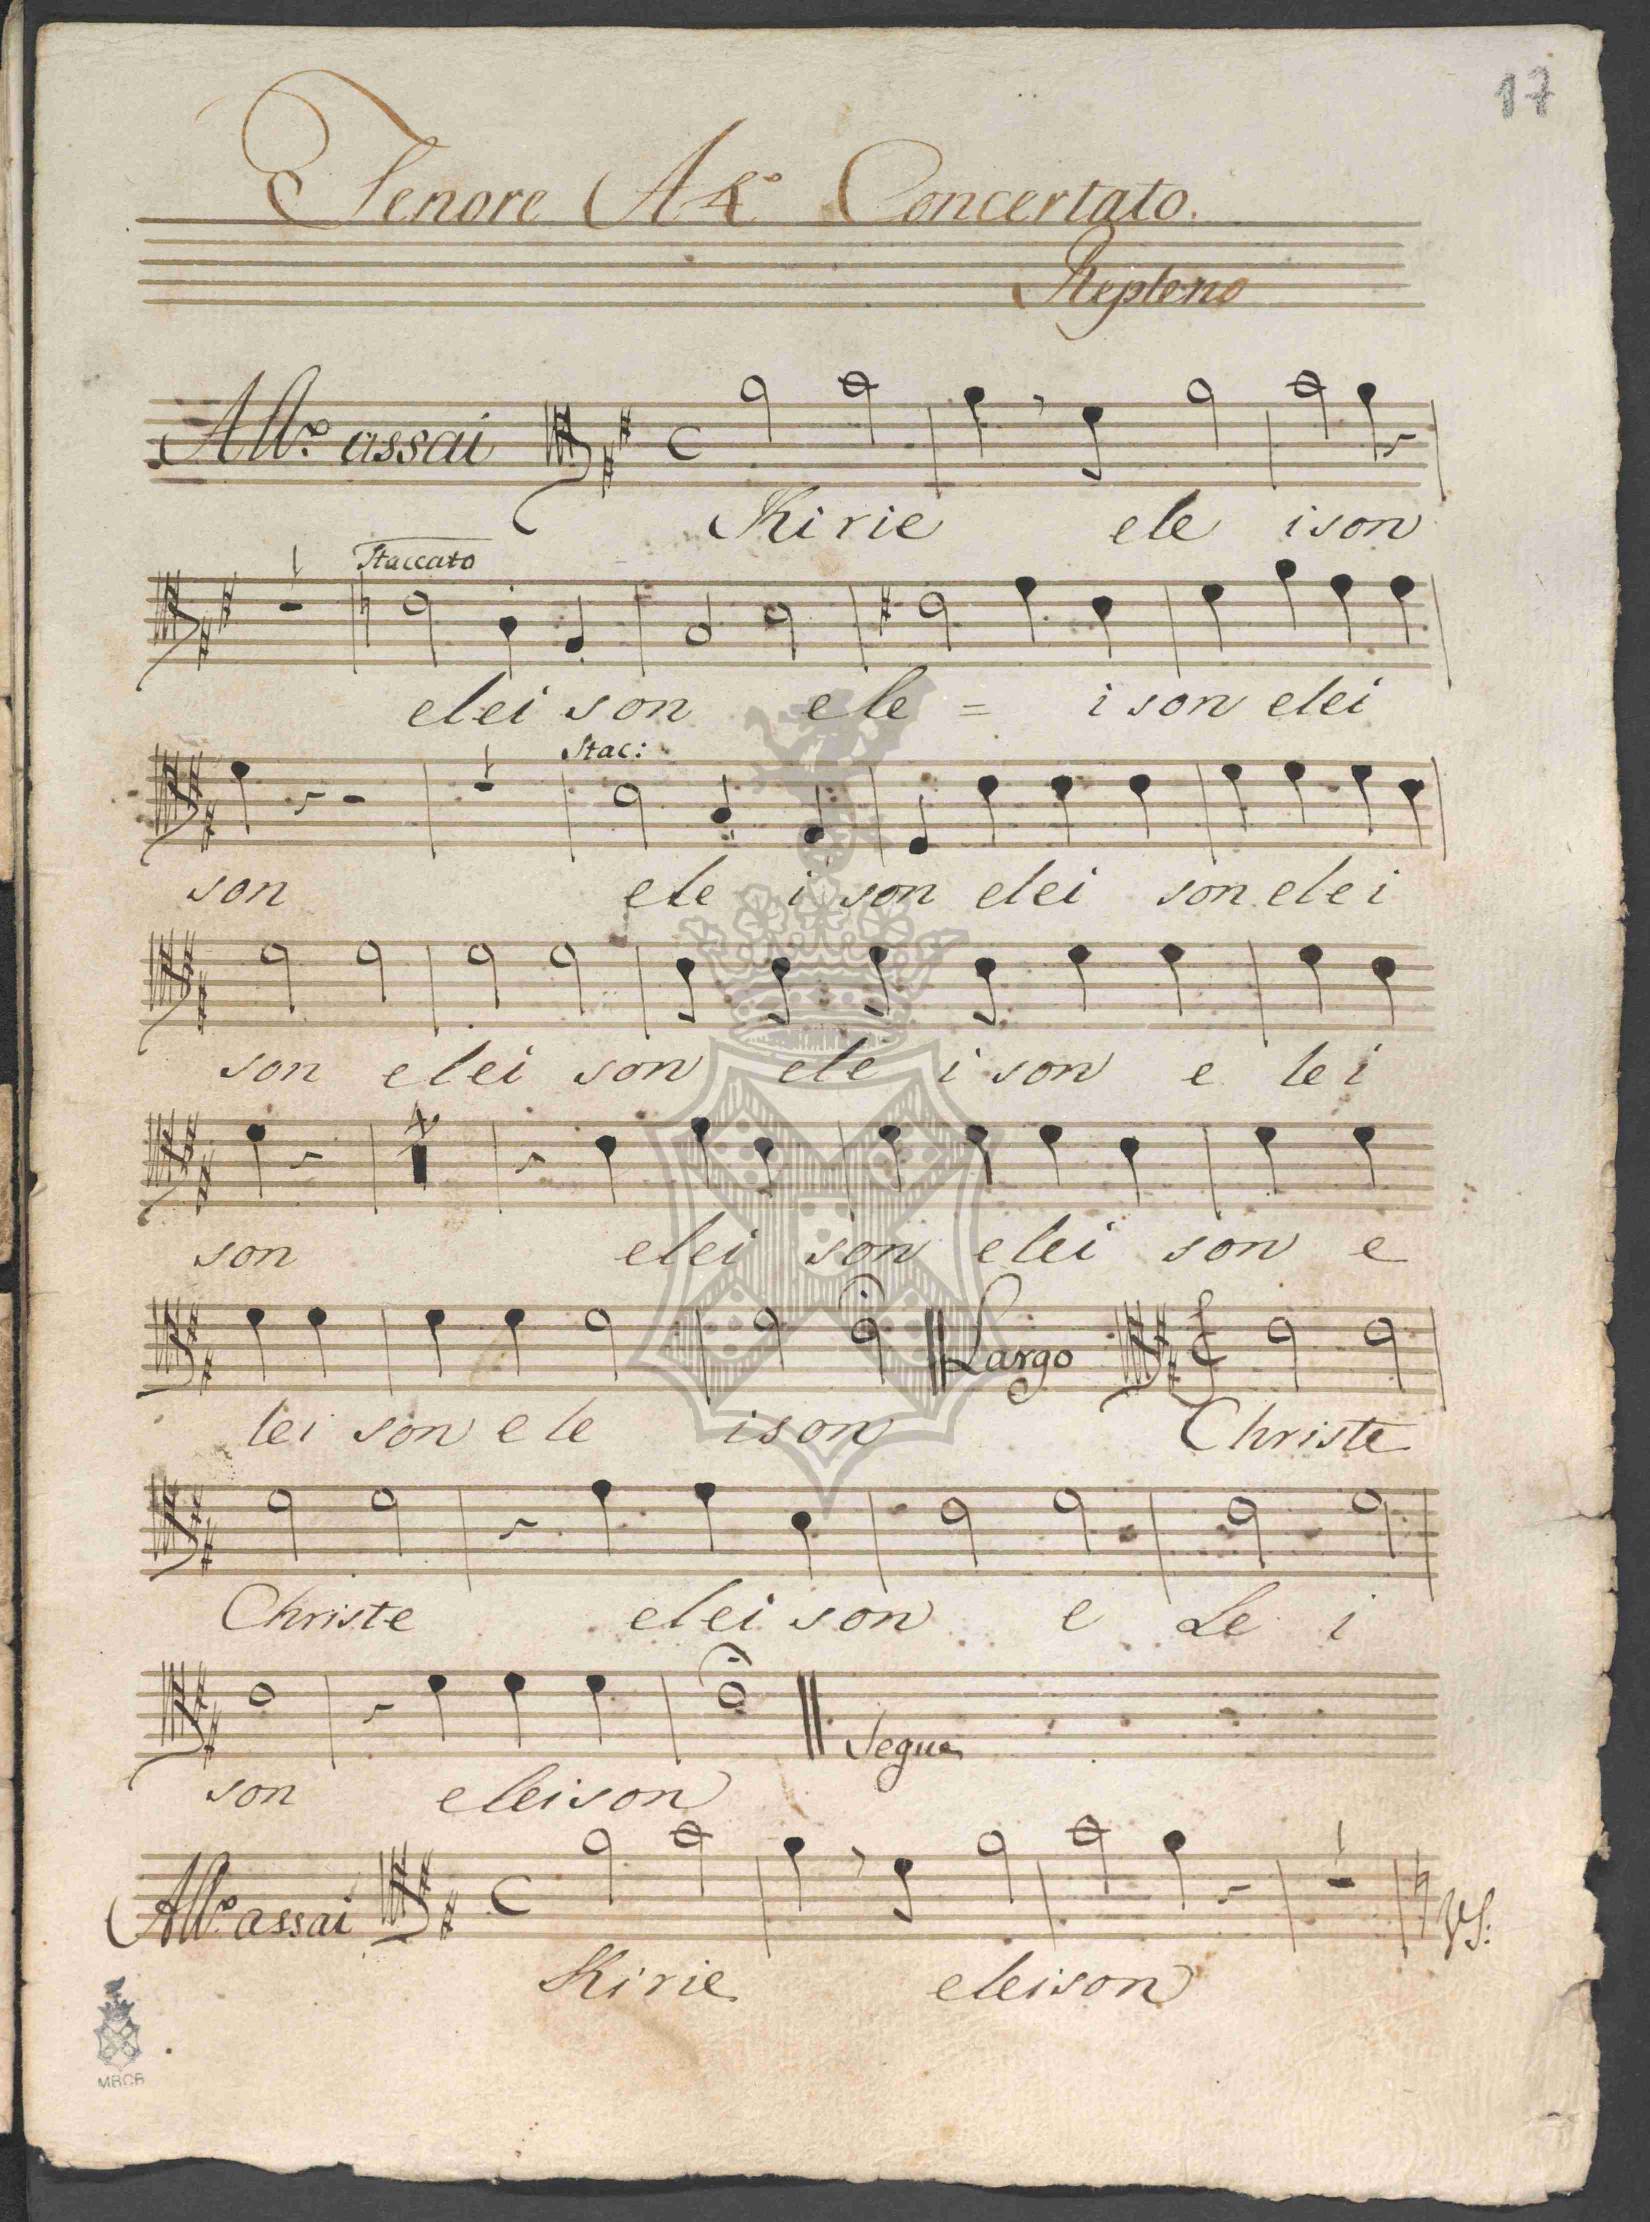 17
Tenore A 4.º Concertato.
Repleno
All.º assai
Kirie ele ison
Staccato
elei son ele = i son elei
Stac:
son ele i son elei son elei
son elei son ele i son e lei
son elei son elei son e
Largo
lei son e le ison Christe
Christe elei son e Le i
Segue
son eleison
All.º assai
VS:
Kirie eleison
MBCB